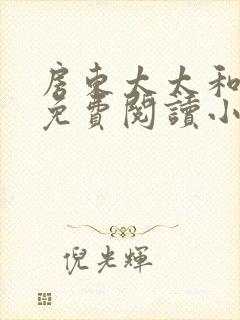 房東太太和
免費閱讀小
倪光輝